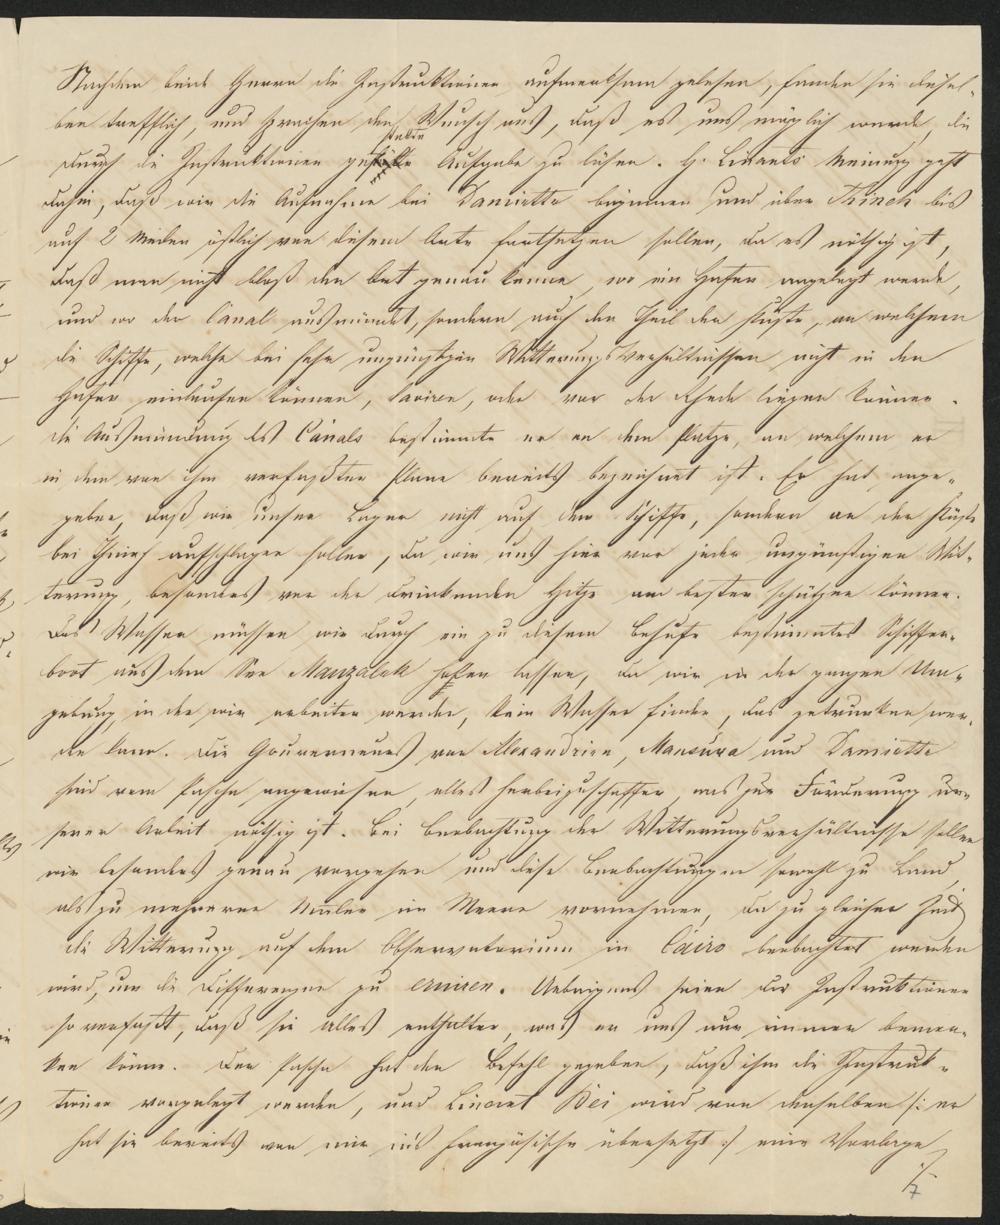 Nachdem beide Herrn die Instruktionen aufmerksam gelesen, fanden sie diesel-
ben trefflich, und sprachen den Wunsch aus, daß es uns möglich werde, die
durch die Instruktionen gestellte Aufgabe zu lösen. H. Linants Meinung geht
dahin, daß wir die Aufnahme bei Damiette beginnen und über Thineh bis
auf 2 Meilen östlich von diesem Orte fortsetzen sollen, da es nöthig ist,
daß man nicht bloß den Ort genau kenne, wo ein Hafen angelegt werde,
und wo der Canal ausmündet, sondern auch den Theil der Küste, an welchem
die Schiffe, welche bei sehr ungünstigen Witterungsverhältnissen nicht in den
Hafen einlaufen können, laviren, oder vor der Rhede liegen können.
die Ausmündung des Canals bestimmte er an dem Platze, an welchem er
in dem von ihm verfaßten Plane bereits bezeichnet ist. Er hat ange-
geben, daß wir unser Lager nicht auf dem Schiffe, sondern an der Küste
bei Thineh aufschlagen sollen, da wir uns hier vor jeder ungünstigen Wit-
terung, besonders vor der drückenden Hitze am besten schützen können.
Das Wasser müssen wir durch ein zu diesem Behufe bestimmtes Schiffer-
boot aus dem See Manzaleh holen lassen, da wir in der ganzen Um-
gebung, in der wir arbeiten werden, kein Wasser finden, das getrunken wer-
den kann. Die Gouverneurs von Alexandrien, Mansura und Damiette
sind vom Pascha angewiesen, alles herbeizuschaffen, was zur Förderung un-
serer Arbeit nöthig ist. Bei Beobachtung der Witterungsverhältnisse sollen
wir besonders genau vorgehen und diese Beobachtungen sowohl zu Land,
als zu mehreren Malen im Meere vornehmen, da zu gleicher Zeit
die Witterung auf dem Observatorium in Cairo beobachtet werden
wird, um die Differenzen zu eruiren. Uebrigens seien die Instruktionen
so verfaßt, daß sie alles enthalten, was er uns nur immer bemer-
ken könne. Der Pascha hat den Befehl gegeben, daß ihm die Instruk-
tionen vorgelegt werden, und Linant Bei wird von denselben /: er
hat sie bereits von mir in's französische übersetzt :/ eine Vorlage
./.
7